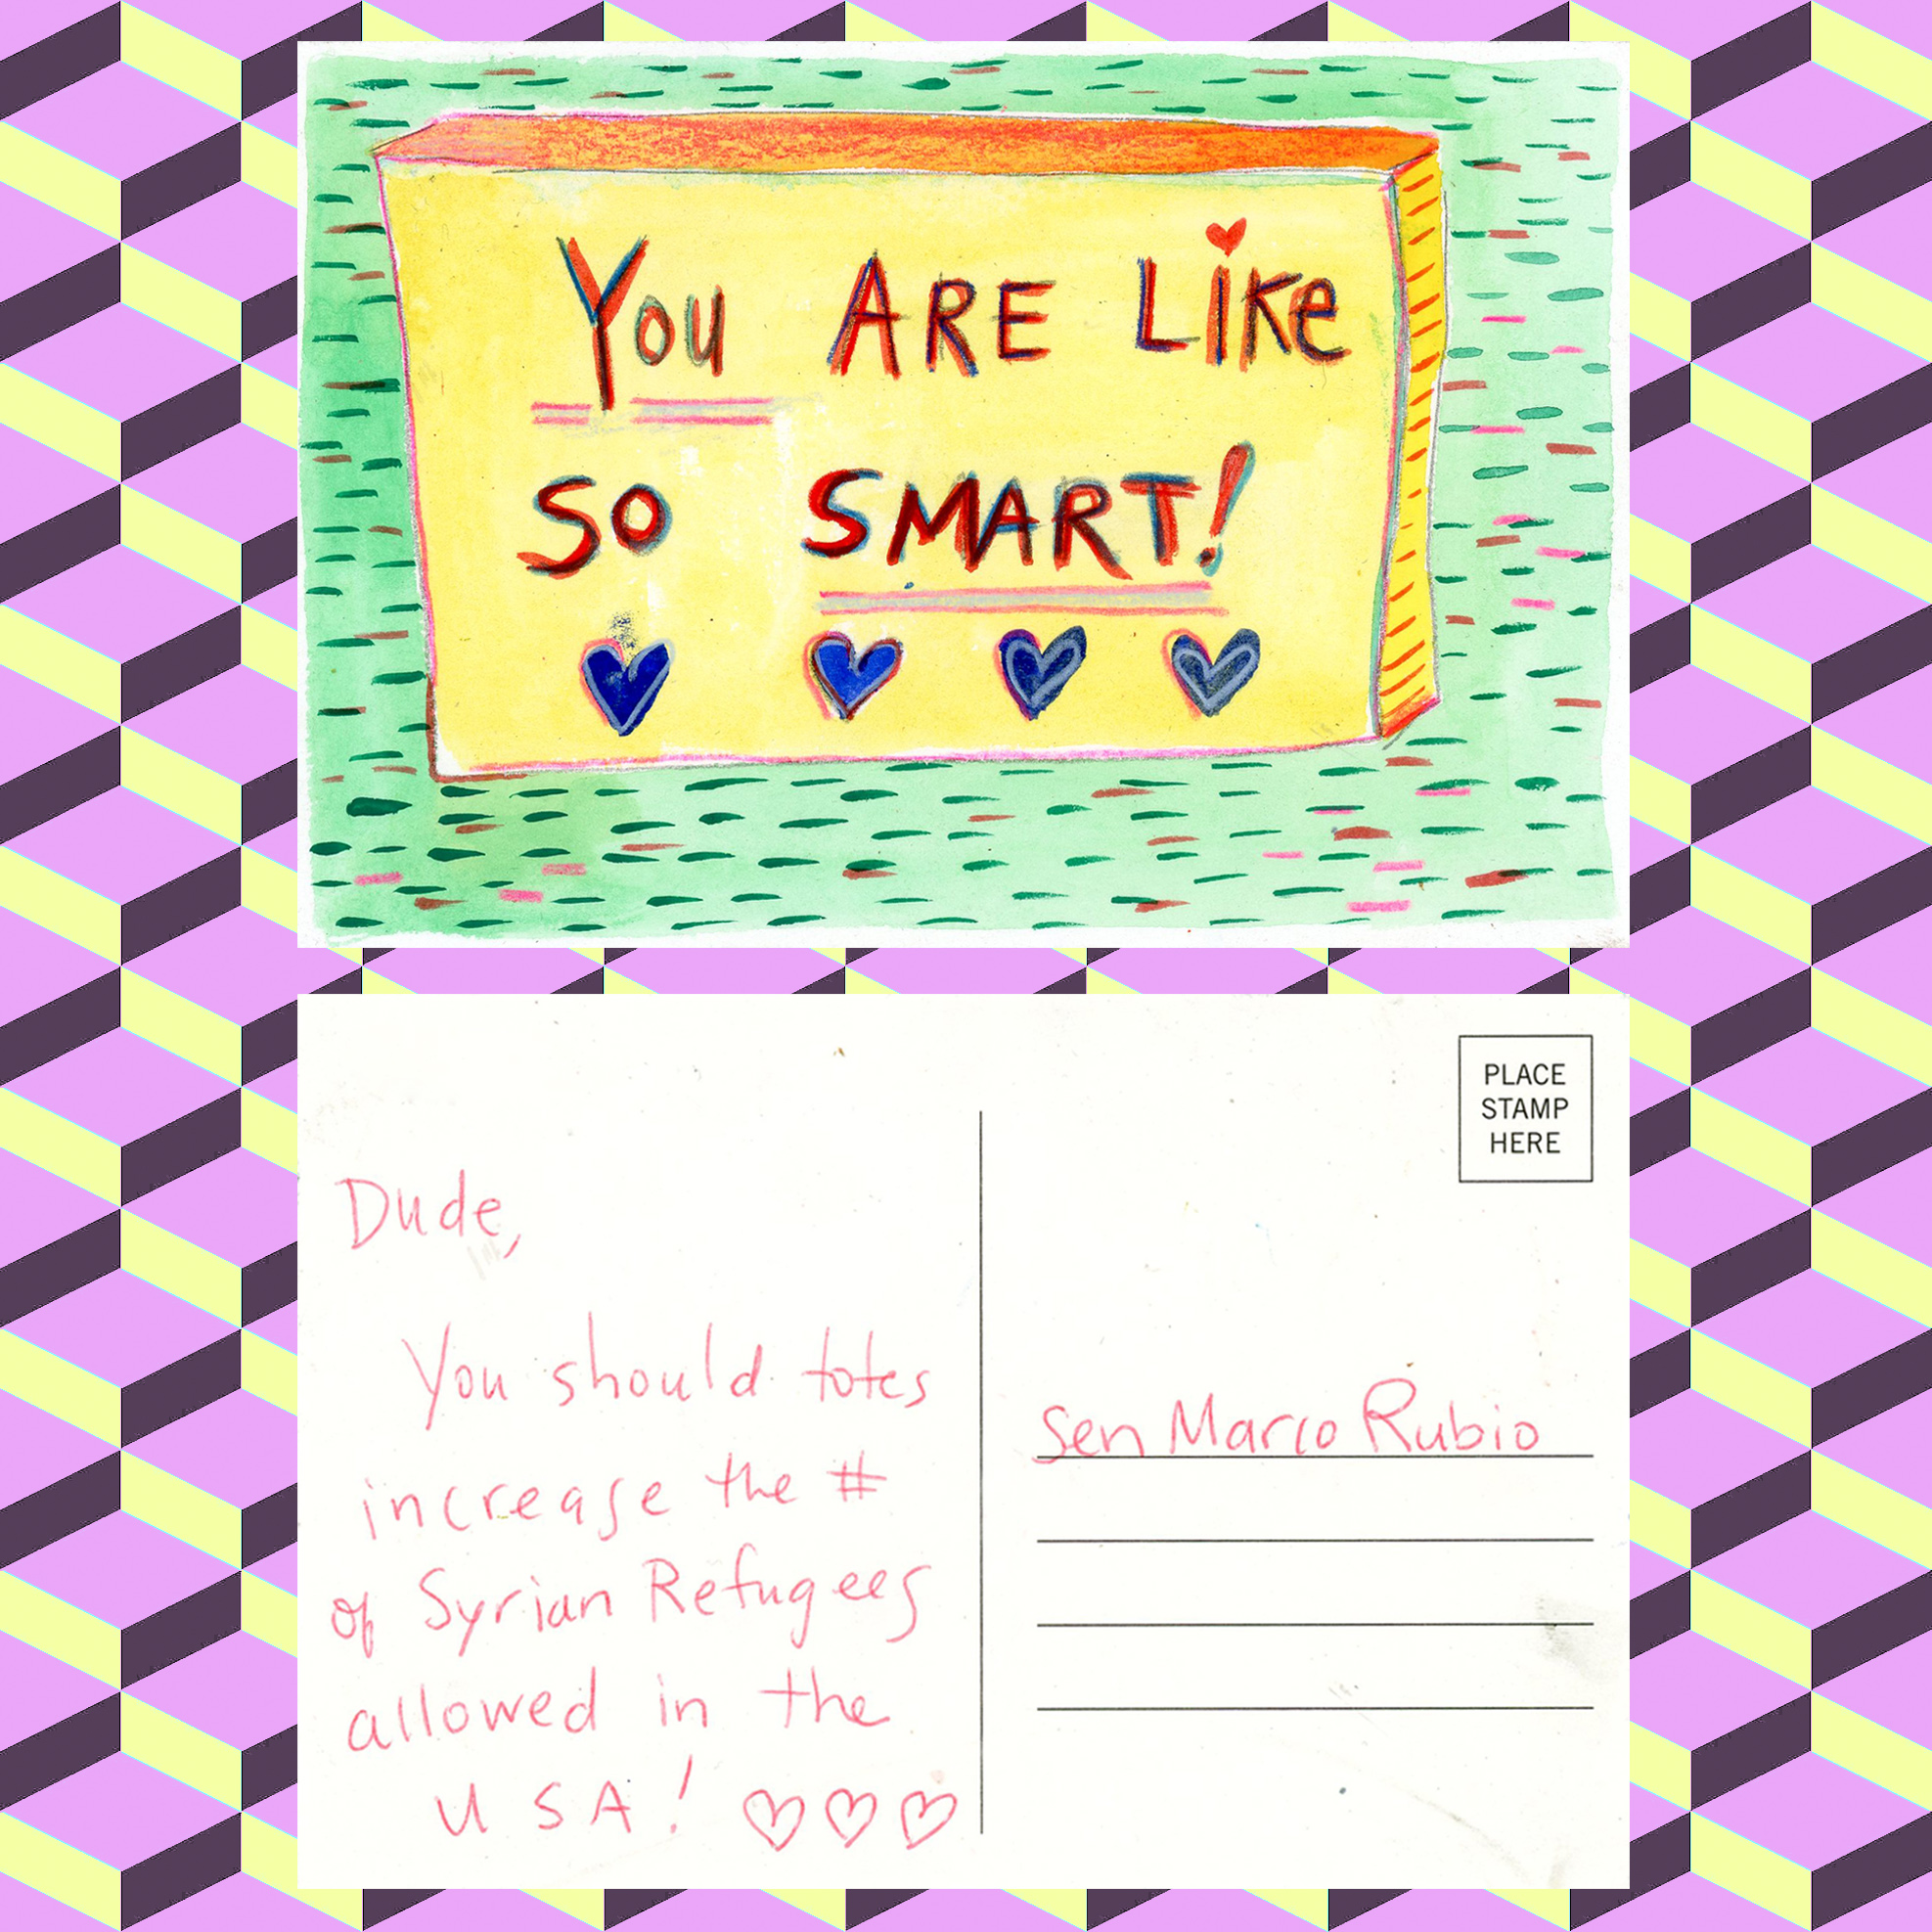 You ARE LiKe
SO SMART!
PLACE
STAMP
HERE
Dude,
You should totes
increase the #
of Syrian Refugees
allowed in the
USA! ♡♡♡
Sen Marco Rubio